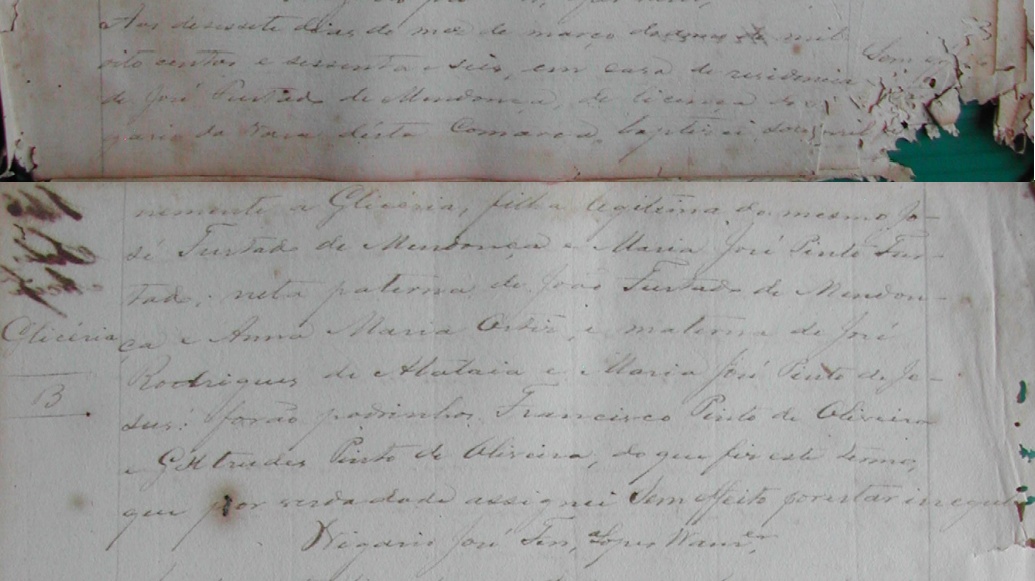 Aos desessete dias do mez de março do anno de mil
oito centos e sessenta e seis, em casa de residencia
Sem
de José Furtado de Mendonça, de licença do
gario da Vara désta Comarca, baptisei
nemente a Glicéria, filha legitima do mesmo Jo-
sé Furtado de Mendonça e Maria José Pinto Fur-
tado; neta paterna de João Furtado de Mendon-
Glicéria
ça e Anna Maria Ortiz, e materna de José
Rodrigues de Alataia e Maria José Pinto de Je-
13
sus: forão padrinhos Francisco Pinto de Oliveira
e Gertrudes Pinto de Oliveira, do que fiz este termo,
que por verdadade assignei Sem effeito por estar irregul
Vigario José